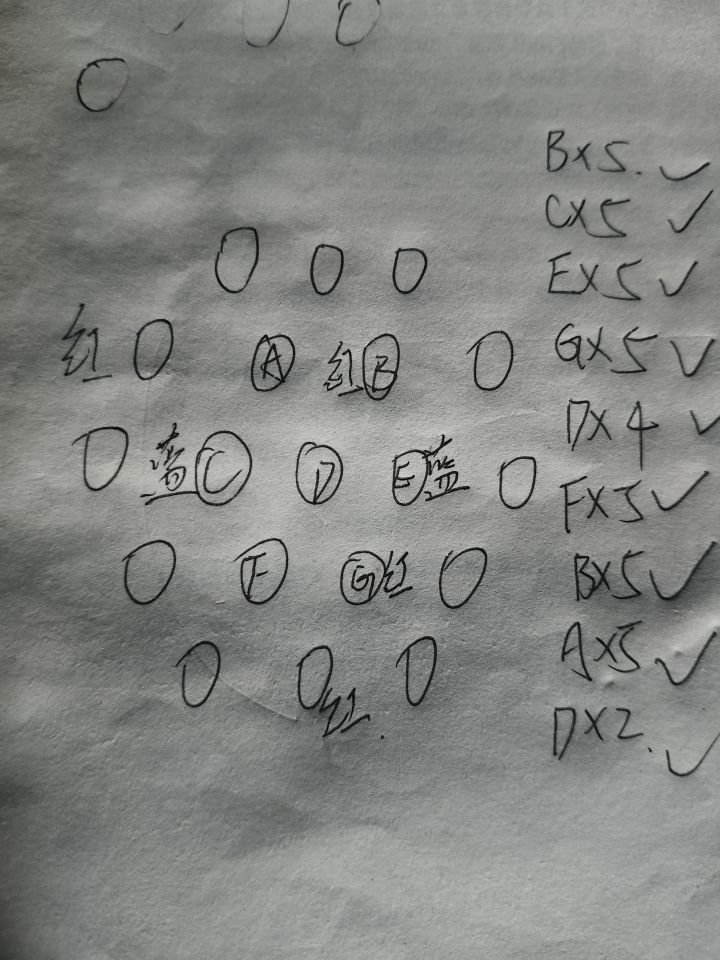 B×5. ✓
C×5 ✓
E×5 ✓
红 A 红 B
G×5 ✓
D×4 ✓
蓝 C D E 蓝
F×5 ✓
F G 红
B×5 ✓
A×5 ✓
红.
D×2. ✓